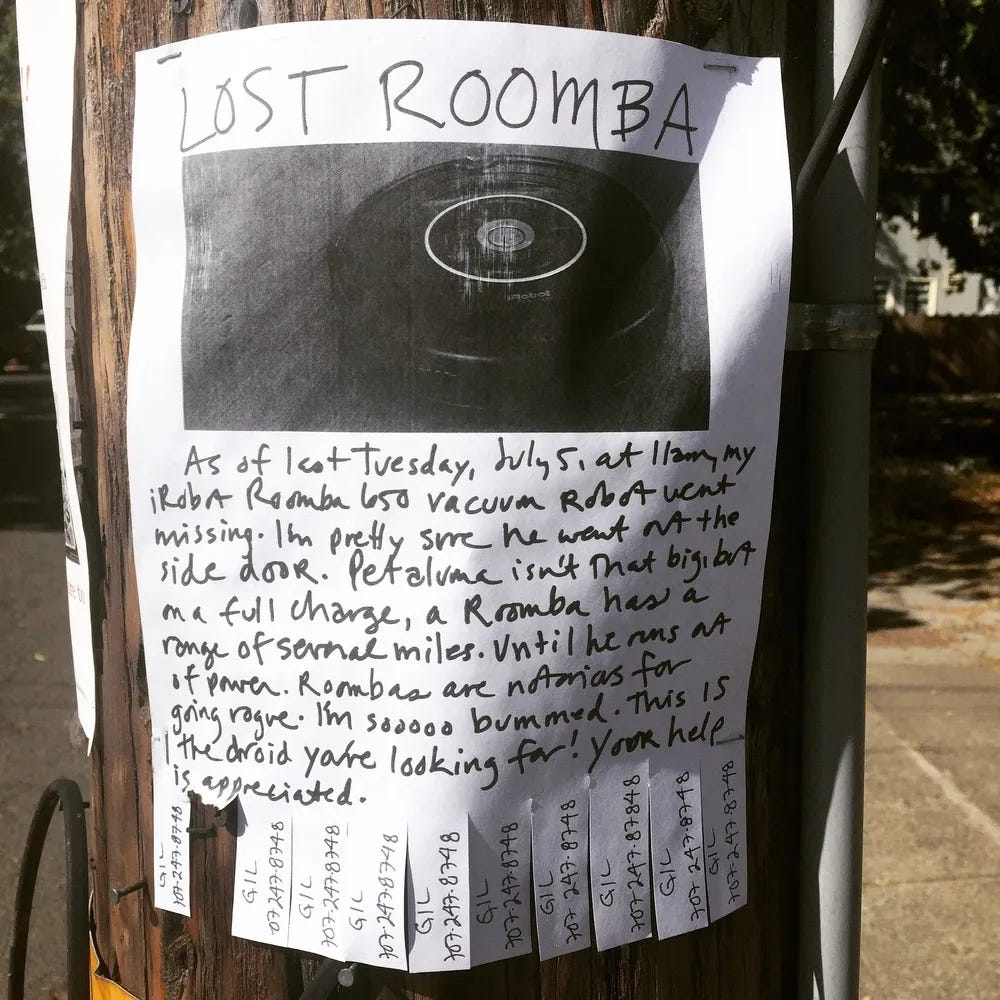 LOST ROOMBA
iRobot
As of last Tuesday, July 5, at 11am, my
iRobot Roomba 650 vacuum Robot went
missing. I'm pretty sure he went out the
side door. Petaluma isn't that big, but
on a full charge, a Roomba has a
range of several miles. Until he runs out
of power. Roombas are notorious for
going rogue. I'm sooooo bummed. This IS
the droid you're looking for! Your help
is appreciated.
GIL
707.247.8748
GIL
07.247.8748
GIL
707.247.8748
GIL
707.247.8748
GIL
707.247.8748
GIL
707.247.8748
GIL
707.247.8748
GIL
707.247.87848
GIL
707.247.8748
GIL
707.247.8748